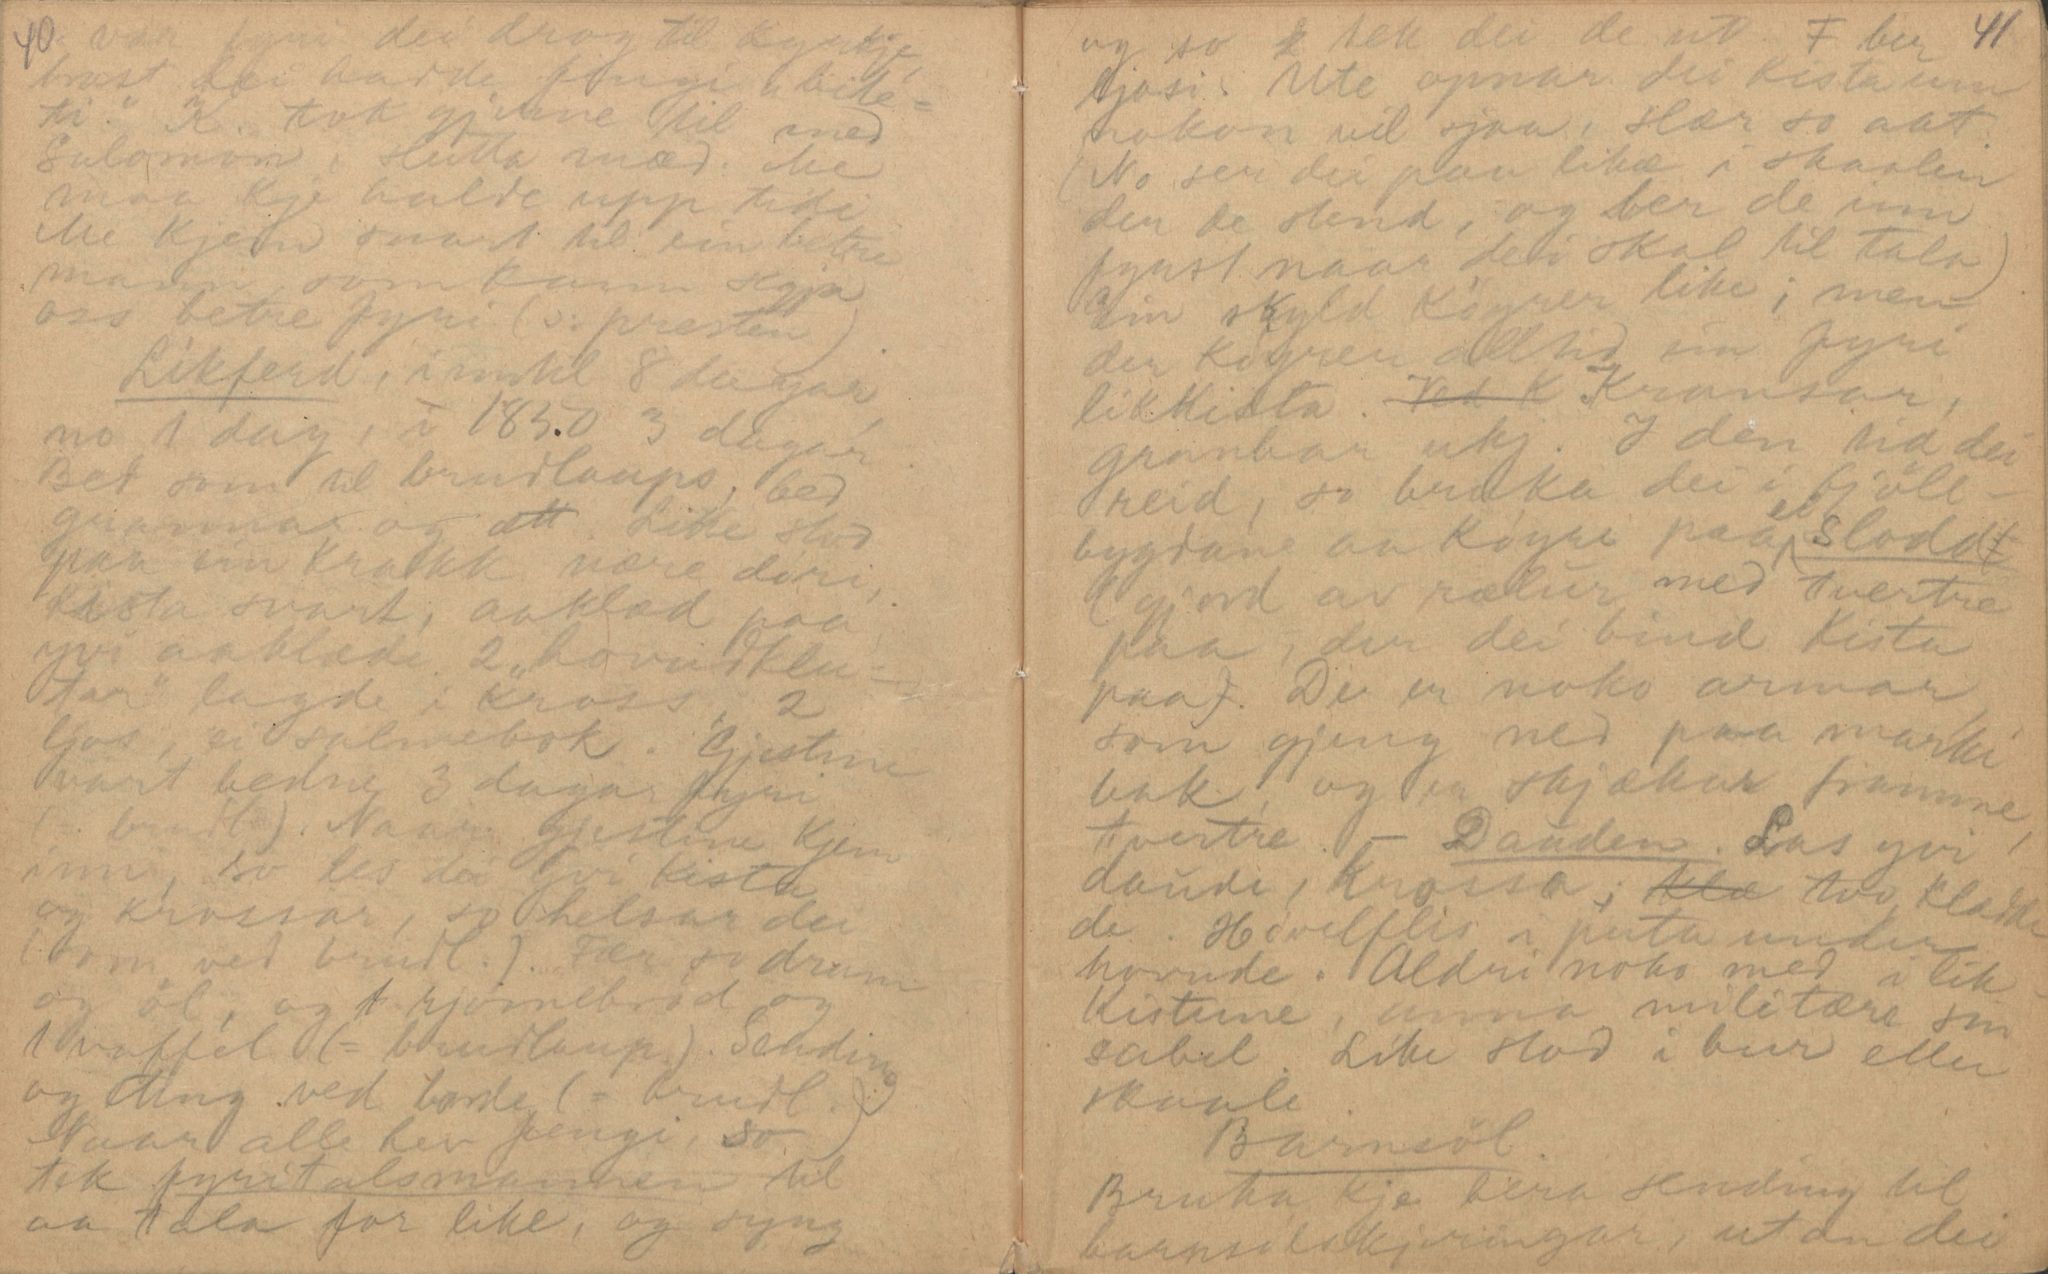 40
var fyri dei drog til kyrkje,
brast dei hadde fingi bite=
ti." K. tok gjerne til med
Salomon, slutta med. Me
maa kje halde upp tidi
Me kjem snart til ein betre
mann som kann sejia
oss betre fyri (o: presten)
Likferd, i mitel 8 dagar,
no 1 dag, i 1850 3 dagar.
Bed som til brudlaups, bed
grannar og ætt. Like stod
paa ein krakk nære døri,
kista svart, aaklæd paa,
yvi aaklæde 2 "hovudklu-
tar" lagde i kross, 2
ljos, ei salmebok. Gjestine
vart bedne 3 dagar fyri
(= brudl.). Naar gjestine kjem
inn, so les dei yvi kista
og krossar, so helsar dei
(som ved brudl.). Fær so dram
og öl, og 1 rjomebrød og
1 vaffel (= brudlaup). Sending
og ting ved borde (= brudl.)
Naar alle hev fengi, so
tek fyritalsmannen til
aa tala for like, og syng
41
og so tek dei de ut. F ber
ljosi. Ute opnar dei kista um
nokon vil sjaa, slær so att.
(No ser dei paa like i skaalin
der de stend, og ber de inn
fyrst naar dei skal til tala)
Ein skyld køyrer like, men
der køyrer alltid ein fyri
likkista. Ved K Kransar,
granbar ukj. I den tid dei
reid, so bruka dei i fjöll-
bygdane aa køyre paa ei slodd
(gjord av rælur med tvertre
paa, der dei bind kista
paa). De er noko armar,
som gjeng ned paa marki
bak, og er skjækur framme,
tvertre. - Dauden. Las yvi
daude, krossa, klæ tvo, kladde
de. Høvelflis i puta under
hovude. Aldri noko med i lik-
kistune, anna militære sin
sabel. Like stod i bur eller
skaale
Barnsöl.
Bruka kje bera sending til
barnsölskjeringar, utan dei